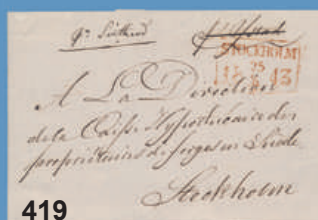 STOCKHOLM
25
43
A La Direction
de la Caisse Hypothécaire des
propriétaires de forges en Suède
Stockholm
419